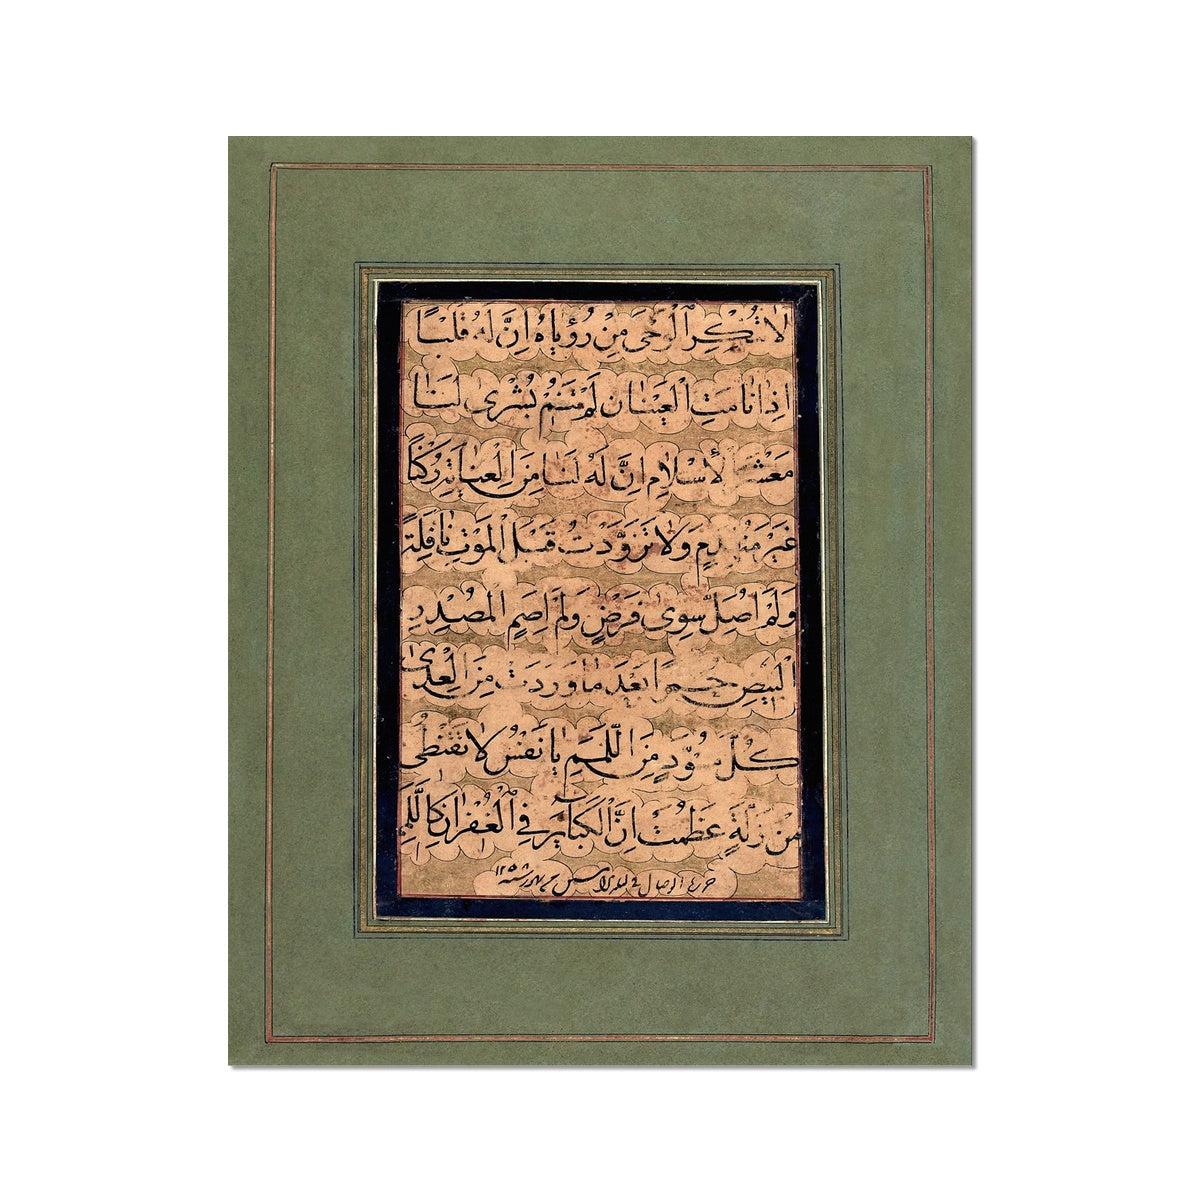 لا تُنْكِرِ الْوَحْيَ مِنْ رُؤْیَاهُ اِنَّ لَهُ قَلْبًا
اِذَا نَامَتِ الْعَیْنَانِ لَمْ یَنَمِ بُشْرٰی لَنَا
مَعْشَرَ الْاِسْلَامِ اِنَّ لَهُ لَنَا مِنَ الْعِنَایَةِ رُكْنًا
غَیْرَ مُنْهَدِمٍ وَلَا تَزَوَّدْتُ قَبْلَ الْمَوْتِ نَافِلَةً
وَلَمْ اُصَلِّ سِوٰی فَرْضٍ وَلَمْ اَصُمِ الْمُصْدِرِ
الْبِیْضِ حُمْرًا بَعْدَ مَا وَرَدَتْ مِنَ الْعِدٰی
كُلَّ مُسْوَدٍّ مِنَ اللِّمَمِ یَا نَفْسُ لَا تَقْنَطِی
مِنْ زَلَّةٍ عَظُمَتْ اِنَّ الْكَبَائِرَ فِی الْغُفْرَانِ كَاللَّمَمِ